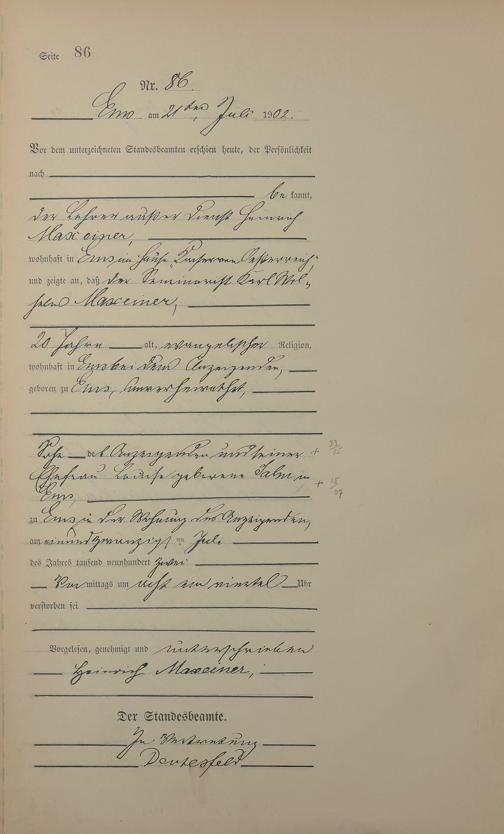 Seite 86
Nr. 86.
Ems am 21ten Juli 1902.
Vor dem unterzeichneten Standesbeamten erschien heute, der Persönlichkeit
nach
be kannt,
der Lehrer außer Dienst Heinrich
Maxeiner,
wohnhaft in Ems, im Hause "Kaiser von Oesterreich"
und zeigte an, daß der Seminarist Karl Wil-
helm Maxeiner,
20 Jahre alt, evangelischer Religion,
wohnhaft in Ems bei dem Anzeigenden,
geboren zu Ems, unverheirathet,
Sohn des Anzeigenden und seiner
Ehefrau Louise geborene in
Ems,
zu Ems in der Wohnung des Anzeigenden,
am einundzwanzigsten Juli
des Jahres tausend neunhundert zwei
Vor mittags um acht ein viertel Uhr
verstorben sei
Vorgelesen, genehmigt und unterschrieben
Heinrich Maxeiner,
Der Standesbeamte.
In Vertretung